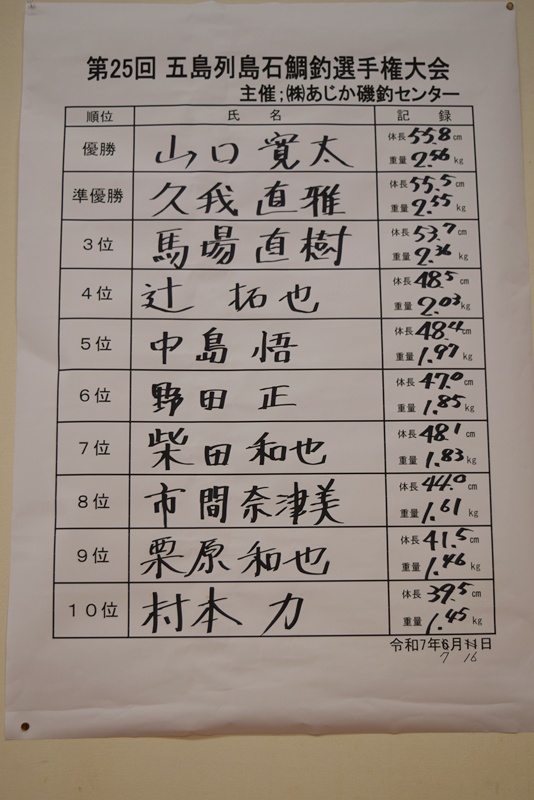 第25回 五島列島石鯛釣選手権大会
主催;㈱あじか磯釣センター
順位 氏名 記録
優勝 山口 寛太 体長 55.8 cm
重量 2.56 kg
準優勝 久我 直雅 体長 55.5 cm
重量 2.55 kg
3位 馬場 直樹 体長 53.7 cm
重量 2.36 kg
4位 辻 拓也 体長 48.5 cm
重量 2.03 kg
5位 中島 悟 体長 48.4 cm
重量 1.97 kg
6位 野田 正 体長 47.0 cm
重量 1.85 kg
7位 柴田 和也 体長 48.1 cm
重量 1.83 kg
8位 市間 奈津美 体長 44.0 cm
重量 1.61 kg
9位 栗原 和也 体長 41.5 cm
重量 1.46 kg
10位 村本 力 体長 39.5 cm
重量 1.45 kg
令和7年6月11日
7 16